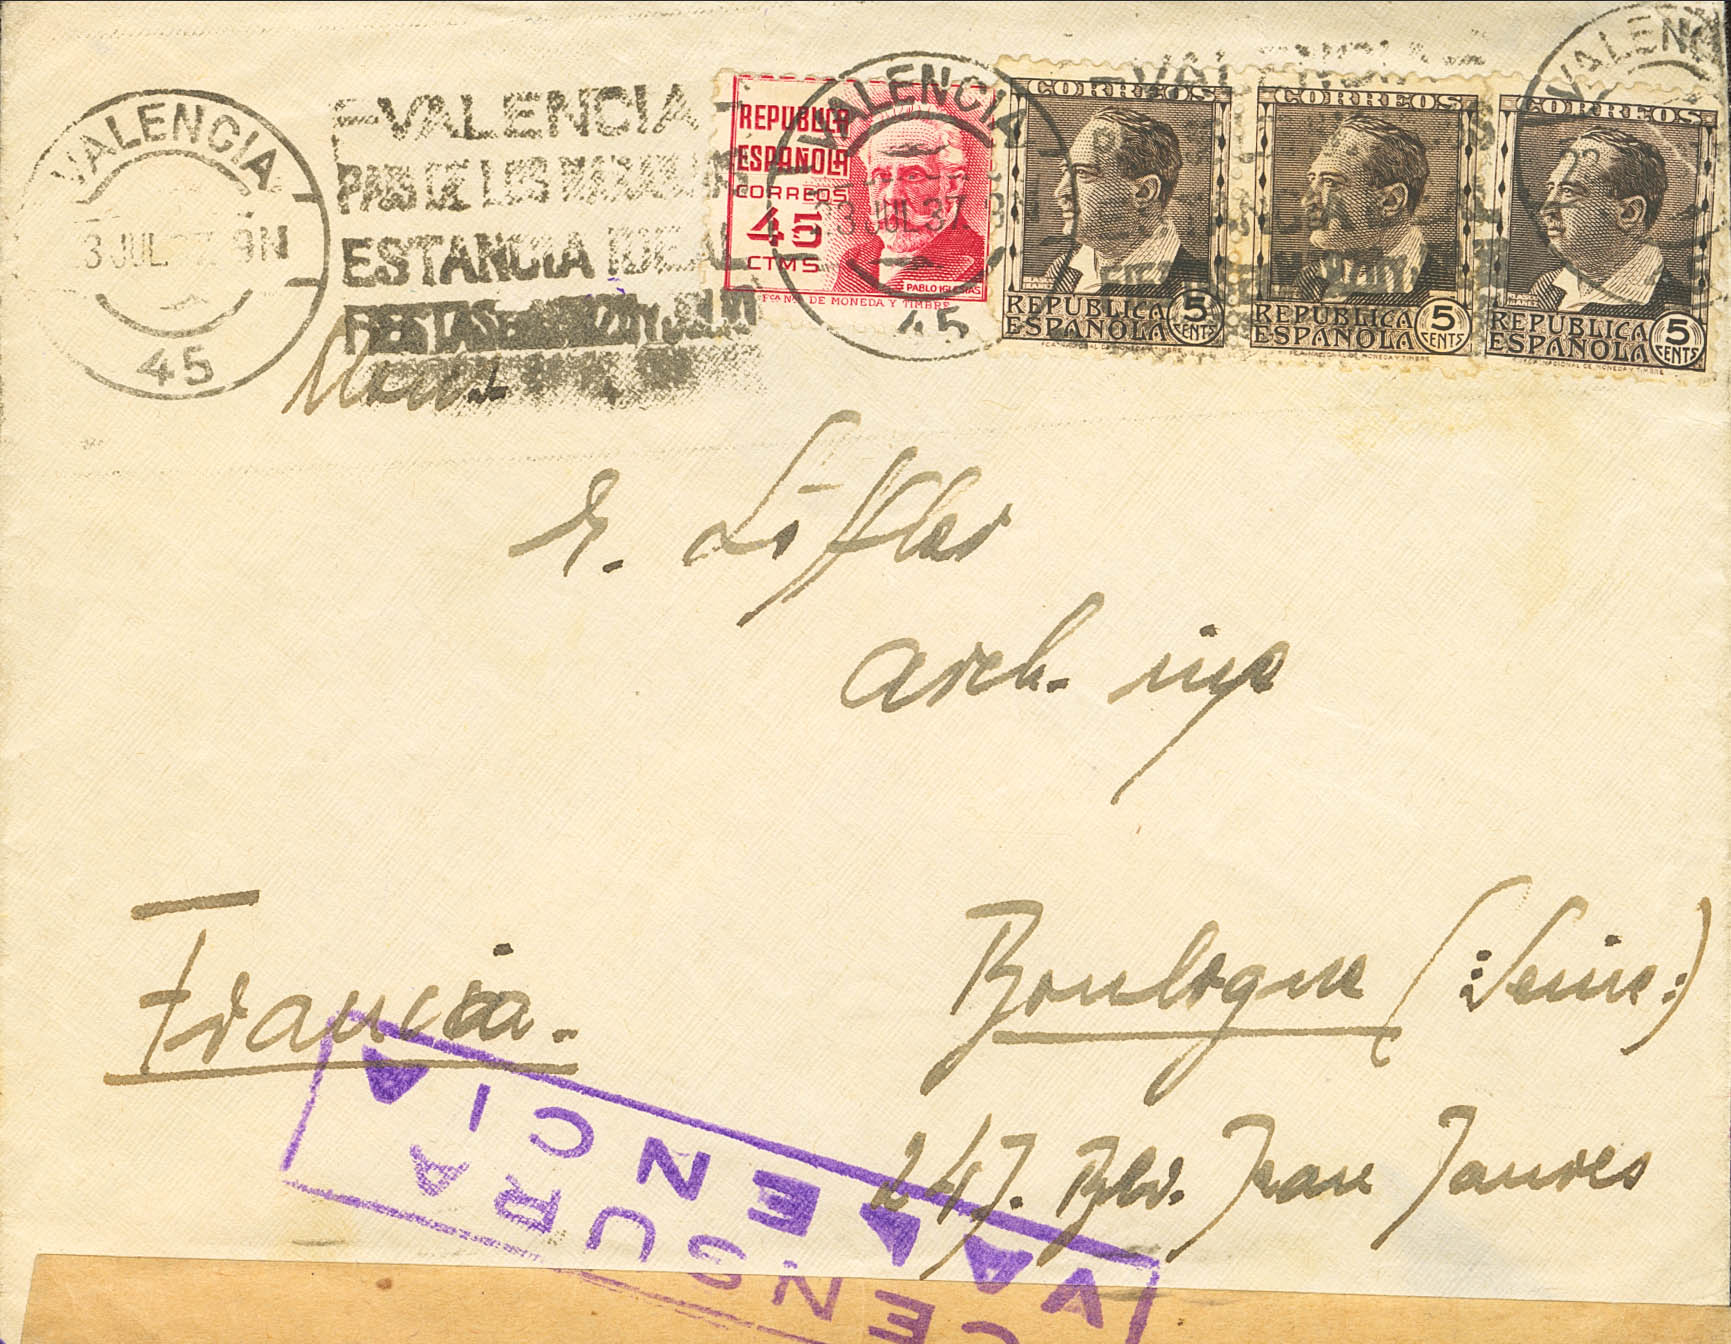 VALENCIA
3 JUL 37. 9N
45
VALENCIA
PAIS DE LAS NARANJAS
ESTANCIA IDEAL
FIESTAS EN MARZO Y JULIO
REPUBLICA
ESPAÑOLA
CORREOS
45
CTMS
PABLO IGLESIAS
Fca Nal DE MONEDA Y TIMBRE
VALENCIA
23 JUL 37. 9N
45
CORREOS
REPUBLICA
ESPAÑOLA
5
CENTS
CORREOS
REPUBLICA
ESPAÑOLA
5
CENTS
CORREOS
BLASCO IBAÑEZ
REPUBLICA
ESPAÑOLA
5
CENTS
VALENCIA
VALENCIA
Arch. ing
Francia.
Boulogne (: Seine :)
247. Blv. Jean Jaures
CENSURA
VALENCIA